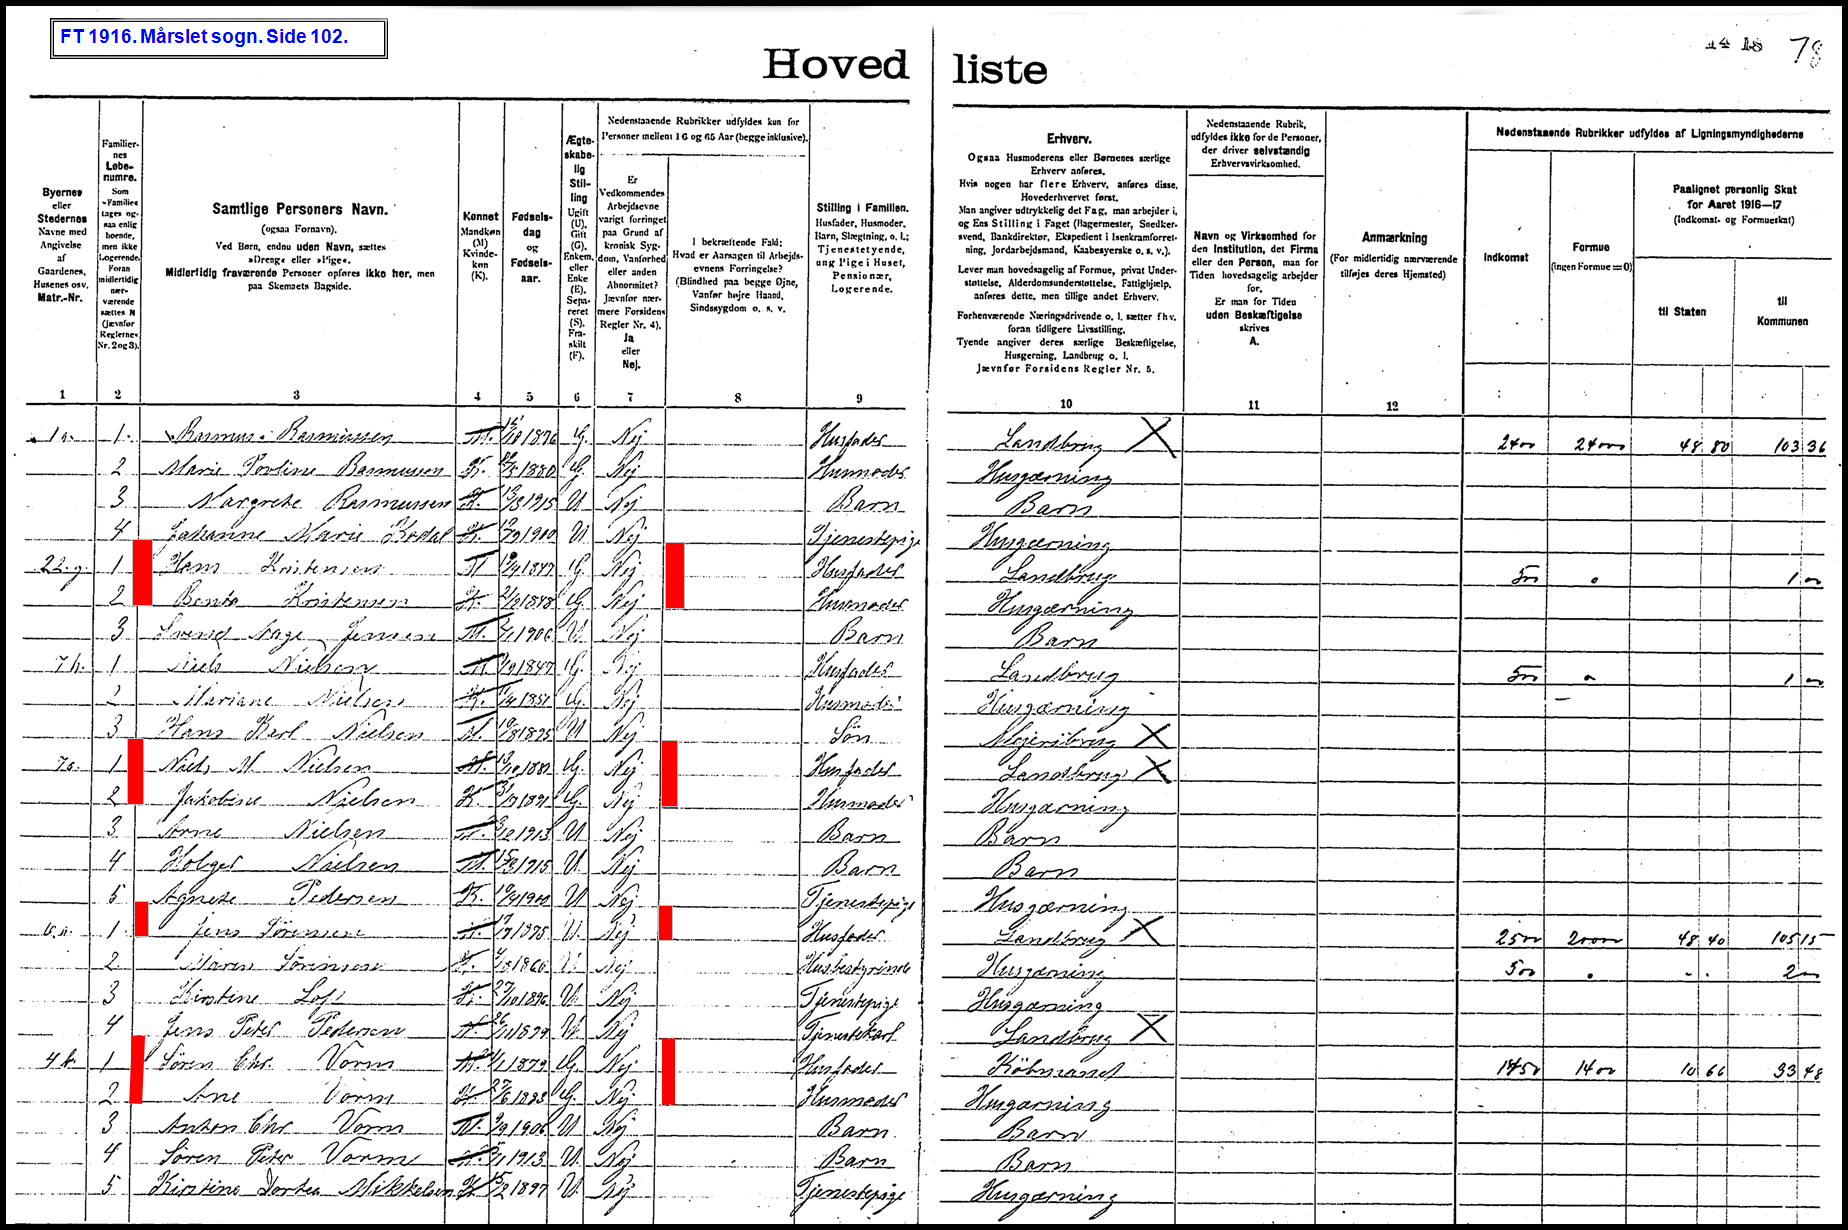 FT 1916. Mårslet sogn. Side 102.
14 18 78
Hoved liste
Byernes
eller
Stedernes
Navne med
Angivelse
af
Gaardenes,
Husenes osv.
Matr.-Nr.
Familier-
nes
Løbe-
numre.
Som
»Familie«
tages og-
saa enlig
boende,
men ikke
Logerende.
Foran
midlertidig
nær-
værende
sættes N
(jævnfør
Reglernes
Nr. 2 og 3).
Samtlige Personers Navn.
(ogsaa Fornavn).
Ved Børn, endnu uden Navn, sættes
»Dreng« eller »Pige«.
Midlertidig fraværende Personer opføres ikke her, men
paa Skemaets Bagside.
Kønnet
Mandkøn
(M)
Kvinde-
køn
(K).
Fødsels-
dag
og
Fødsels-
aar.
Ægte-
skabe-
lig
Stil-
ling
Ugift
(U),
Gift
(G),
Enkem.
eller
Enke
(E),
Sepa-
reret
(S),
Fra-
skilt
(F).
Nedenstaaende Rubrikker udfyldes kun for
Personer mellem 16 og 65 Aar (begge inklusive).
Er
Vedkommendes
Arbejdsevne
varigt forringet
paa Grund af
kronisk Syg-
dom, Vanførhed
eller anden
Abnormitet?
Jævnfør nær-
mere Forsidens
Regler Nr. 4).
Ja
eller
Nej.
I bekræftende Fald:
Hvad er Aarsagen til Arbejds-
evnens Forringelse?
(Blindhed paa begge Øjne,
Vanfør højre Haand,
Sindssygdom o. s. v.
Stilling i Familien.
Husfader, Husmoder,
Barn, Slægtning, o. l.;
Tjenestetyende,
ung Pige i Huset,
Pensionær,
Logerende.
Erhverv.
Ogsaa Husmoderens eller Børnenes særlige
Erhverv anføres.
Hvis nogen har flere Erhverv, anføres disse,
Hovederhvervet først.
Man angiver udtrykkelig det Fag, man arbejder i,
og Ens Stilling i Faget (Bagermester, Snedker-
svend, Bankdirektør, Ekspedient i Isenkramforret-
ning, Jordarbejdsmand, Kaabesyerske o. s. v.).
Lever man hovedsagelig af Formue, privat Under-
støttelse, Alderdomsunderstøttelse, Fattighjælp,
anføres dette, men tillige andet Erhverv.
Forhenværende Næringsdrivende o. l. sætter fhv.
foran tidligere Livsstilling.
Tyende angiver deres særlige Beskæftigelse,
Husgerning, Landbrug o. l.
Jævnfør Forsidens Regler Nr. 5.
Nedenstaaende Rubrik,
udfyldes ikke for de Personer,
der driver selvstændig
Erhvervsvirksomhed.
Navn og Virksomhed for
den Institution, det Firma
eller den Person, man for
Tiden hovedsagelig arbejder
for.
Er man for Tiden
uden Beskæftigelse
skrives
A.
Anmærkning
(For midlertidig nærværende
tilføjes deres Hjemsted)
Nedenstaaende Rubrikker udfyldes af Ligningsmyndighederne
Indkomst
Formue
(ingen Formue = 0)
Paalignet personlig Skat
for Aaret 1916—17
(Indkomst- og Formueskat)
til Staten
til
Kommunen
1 2 3 4 5 6 7 8 9 10 11 12
1 Rasmus Rasmussen M. 1876 G. Nej Husfader Landbrug X 2400 24000 48 80 103 36
2 Marie Povline Rasmussen K. 1880 G. Nej Husmoder Husgærning
3 Margrete Rasmussen K. 1915 U Nej Barn Barn
4 Johanne Marie K. 1900 U Nej Tjenestepige Husgærning
1 Hans Kristensen M 1847 G. Nej Husfader Landbrug 500 0 1 00
2 Bente Kristensen K. 1848 G. Nej Husmoder Husgærning
3 Svend Aage Jensen M. 1906 U. Nej Barn Barn
7h. 1 Niels Nielsen M 1847 G. Nej Husfader Landbrug 500 0 1 00
2 Mariane Nielsen K. 1851 G. Nej Husmoder Husgærning
3 Hans Karl Nielsen M. 1895 U Nej Søn Mejeribrug X
1 Niels M. Nielsen M. G. Nej Husfader Landbrug X
2 Jakobine Nielsen K. 1891 G. Nej Husmoder Husgærning
3 Arne Nielsen M. 1913 U Nej Barn Barn
4 Holger Nielsen M. 1915 U. Nej Barn Barn
5 Agnese Pedersen K. 1900 U Nej Tjenestepige Husgærning
1 Jens Sørensen M. U. Nej Husfader Landbrug X 2500 20000 48 40 105 15
2 Maren Sørensen K. 1860 U. Nej Husbestyrinde Husgærning 500 0 - - 2 00
3 Kirstine K. 1896 U. Nej Tjenestepige Husgærning
4 Jens Peter Pedersen M. 1899 U. Nej Tjenestekarl Landbrug X
1 Søren Chr. Vorm M. 1879 G. Nej Husfader Købmand 1450 1400 10 66 33 48
2 Ane Vorm K. 27/6 1883 G. Nej Husmoder Husgærning
3 Anton Chr Vorm M. 1906 U Nej Barn Barn
4 Søren Peter Vorm M. 1913 U. Nej Barn Barn
5 Kirstine Dortea Mikkelsen K. 1897 U. Nej Tjenestepige Husgærning